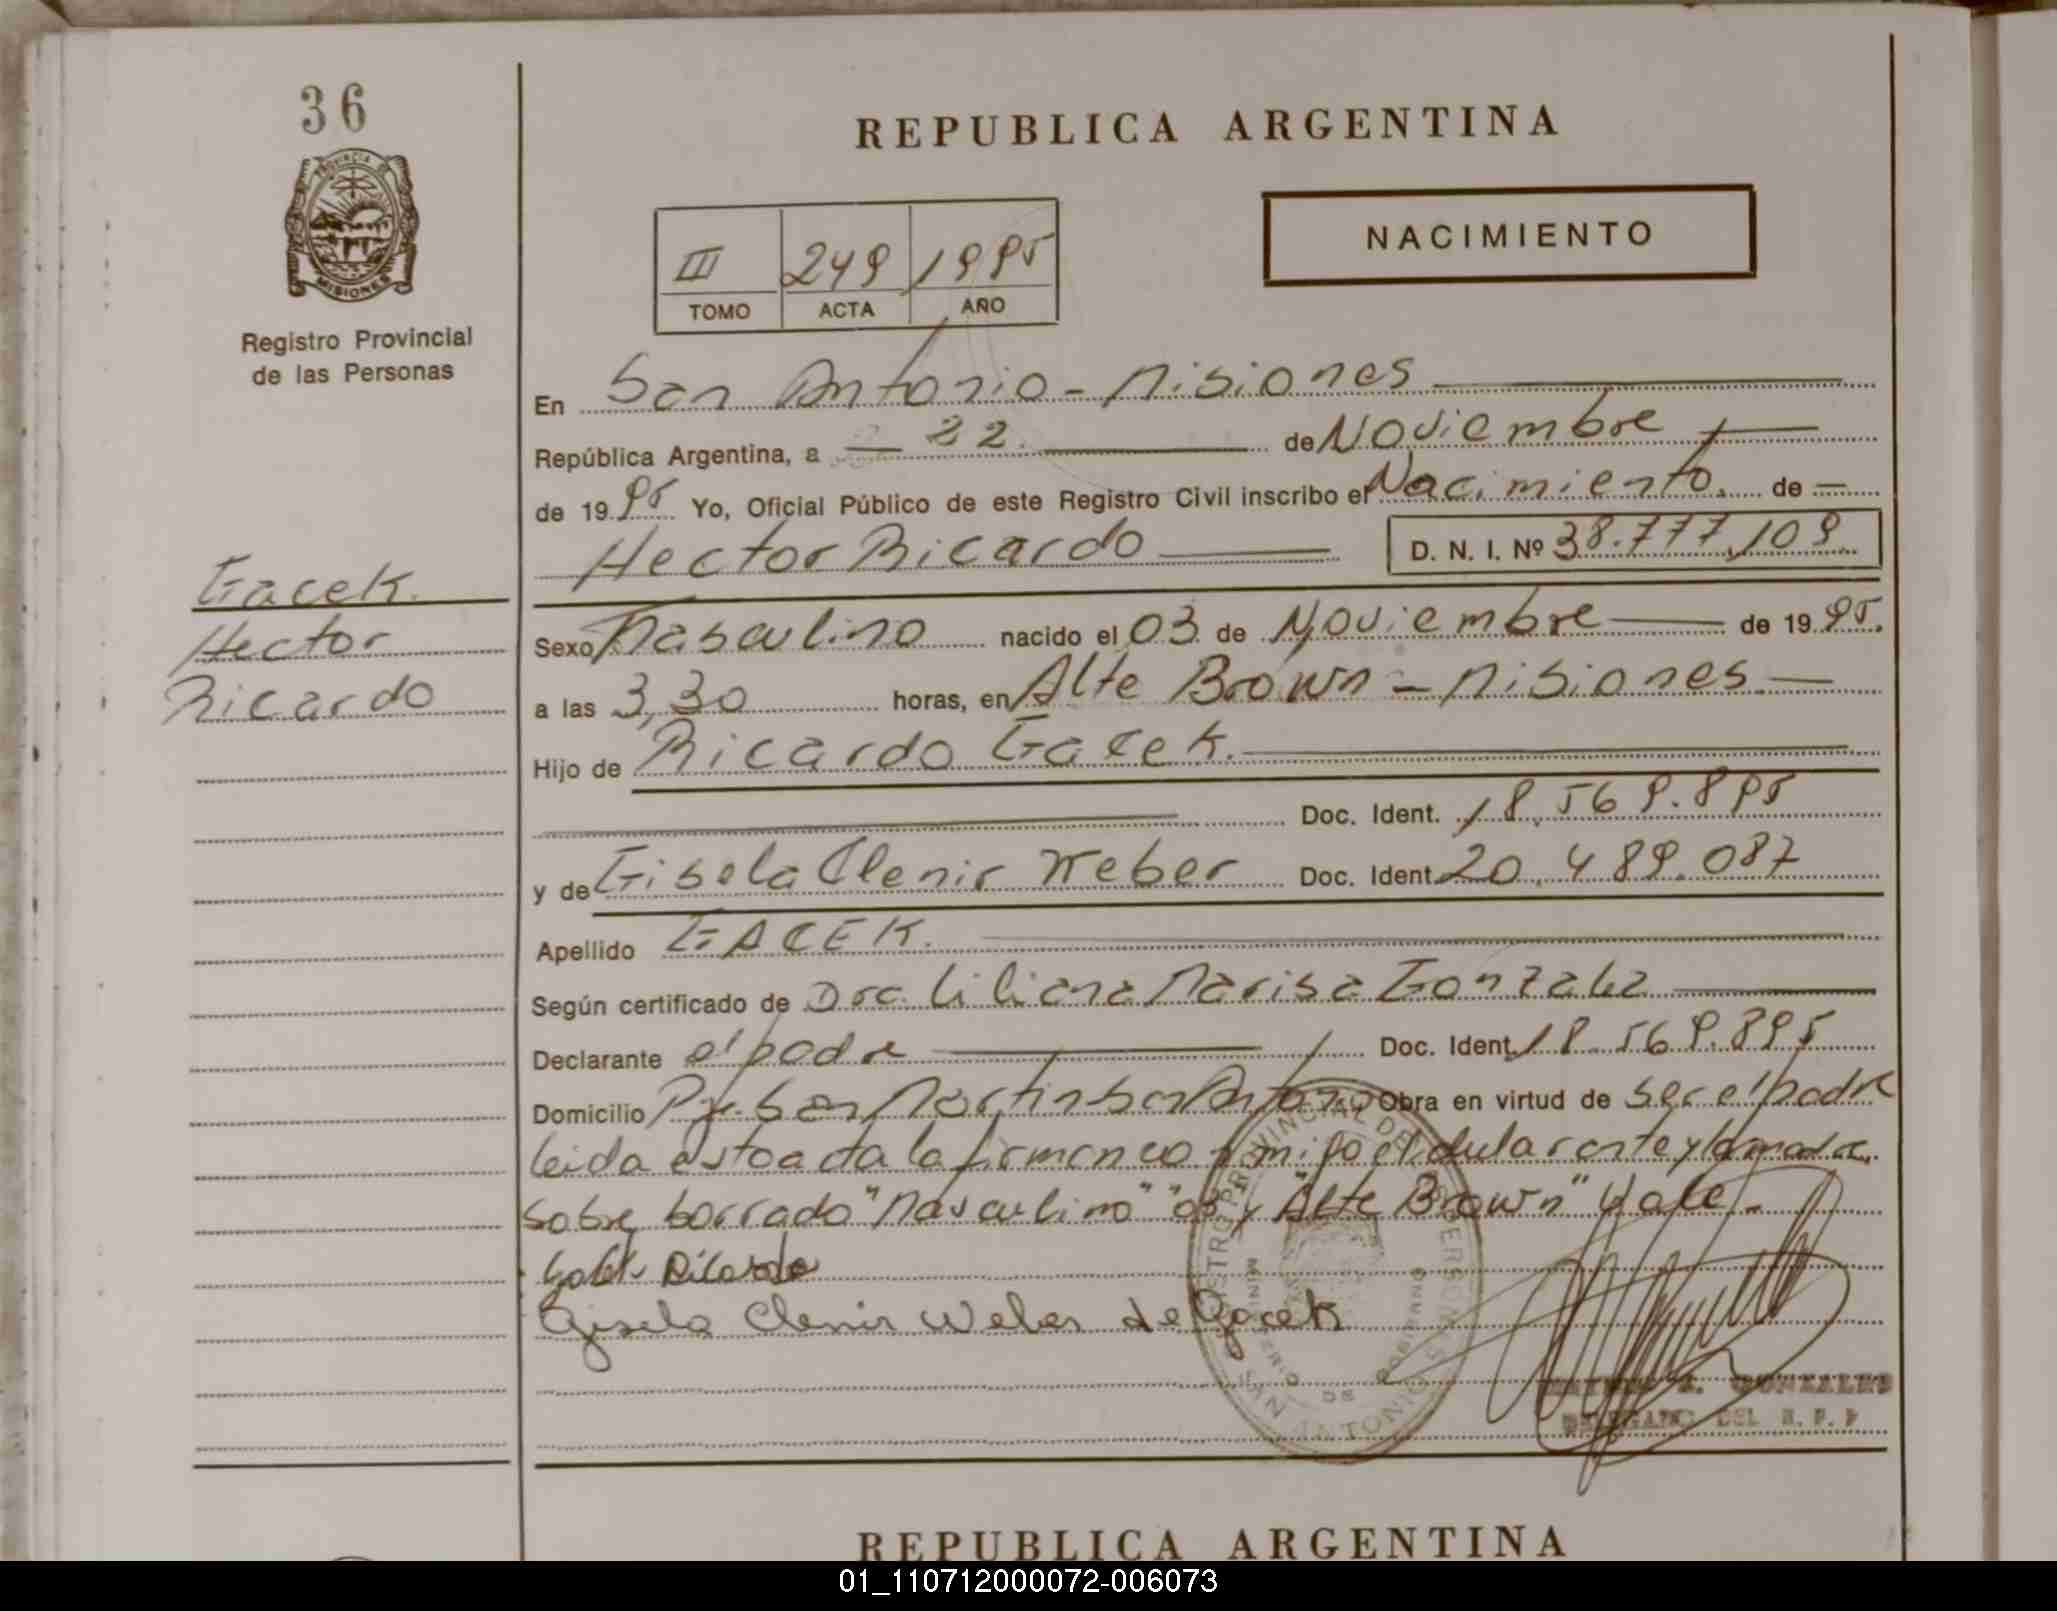 36
REPUBLICA ARGENTINA
PROVINCIA DE
MISIONES
NACIMIENTO
III 249 1995
TOMO ACTA AÑO
Registro Provincial
de las Personas
En San Antonio - Misiones
República Argentina, a 22 de Noviembre
de 1995 Yo, Oficial Público de este Registro Civil inscribo el Nacimiento. de
Hector Ricardo D. N. I. Nº 38.777.109
Gacek
Hector
Ricardo
Sexo Masculino nacido el 03 de Noviembre de 1995.
a las 3,30 horas, en Alte Brown - Misiones
Hijo de Ricardo Gacek.
Doc. Ident. 18.569.895
y de Gisela Clenir Weber Doc. Ident. 20.489.087
Apellido GACEK.
Según certificado de Dra. Liliana Marisa Gonzalez
Declarante el padre Doc. Ident. 18.569.895
Domicilio Pje. San Martin San Antonio Obra en virtud de ser el padre
leida esta acta la firman co el y la madre.
Sobre borrado "Masculino" "03" y "Alte Brown" Vale.-
Gacek Ricardo
Gisela Clenir Weber de Gacek
GONZALEZ
DELEGADO DEL R. P. P
REPUBLICA ARGENTINA
01_110712000072-006073